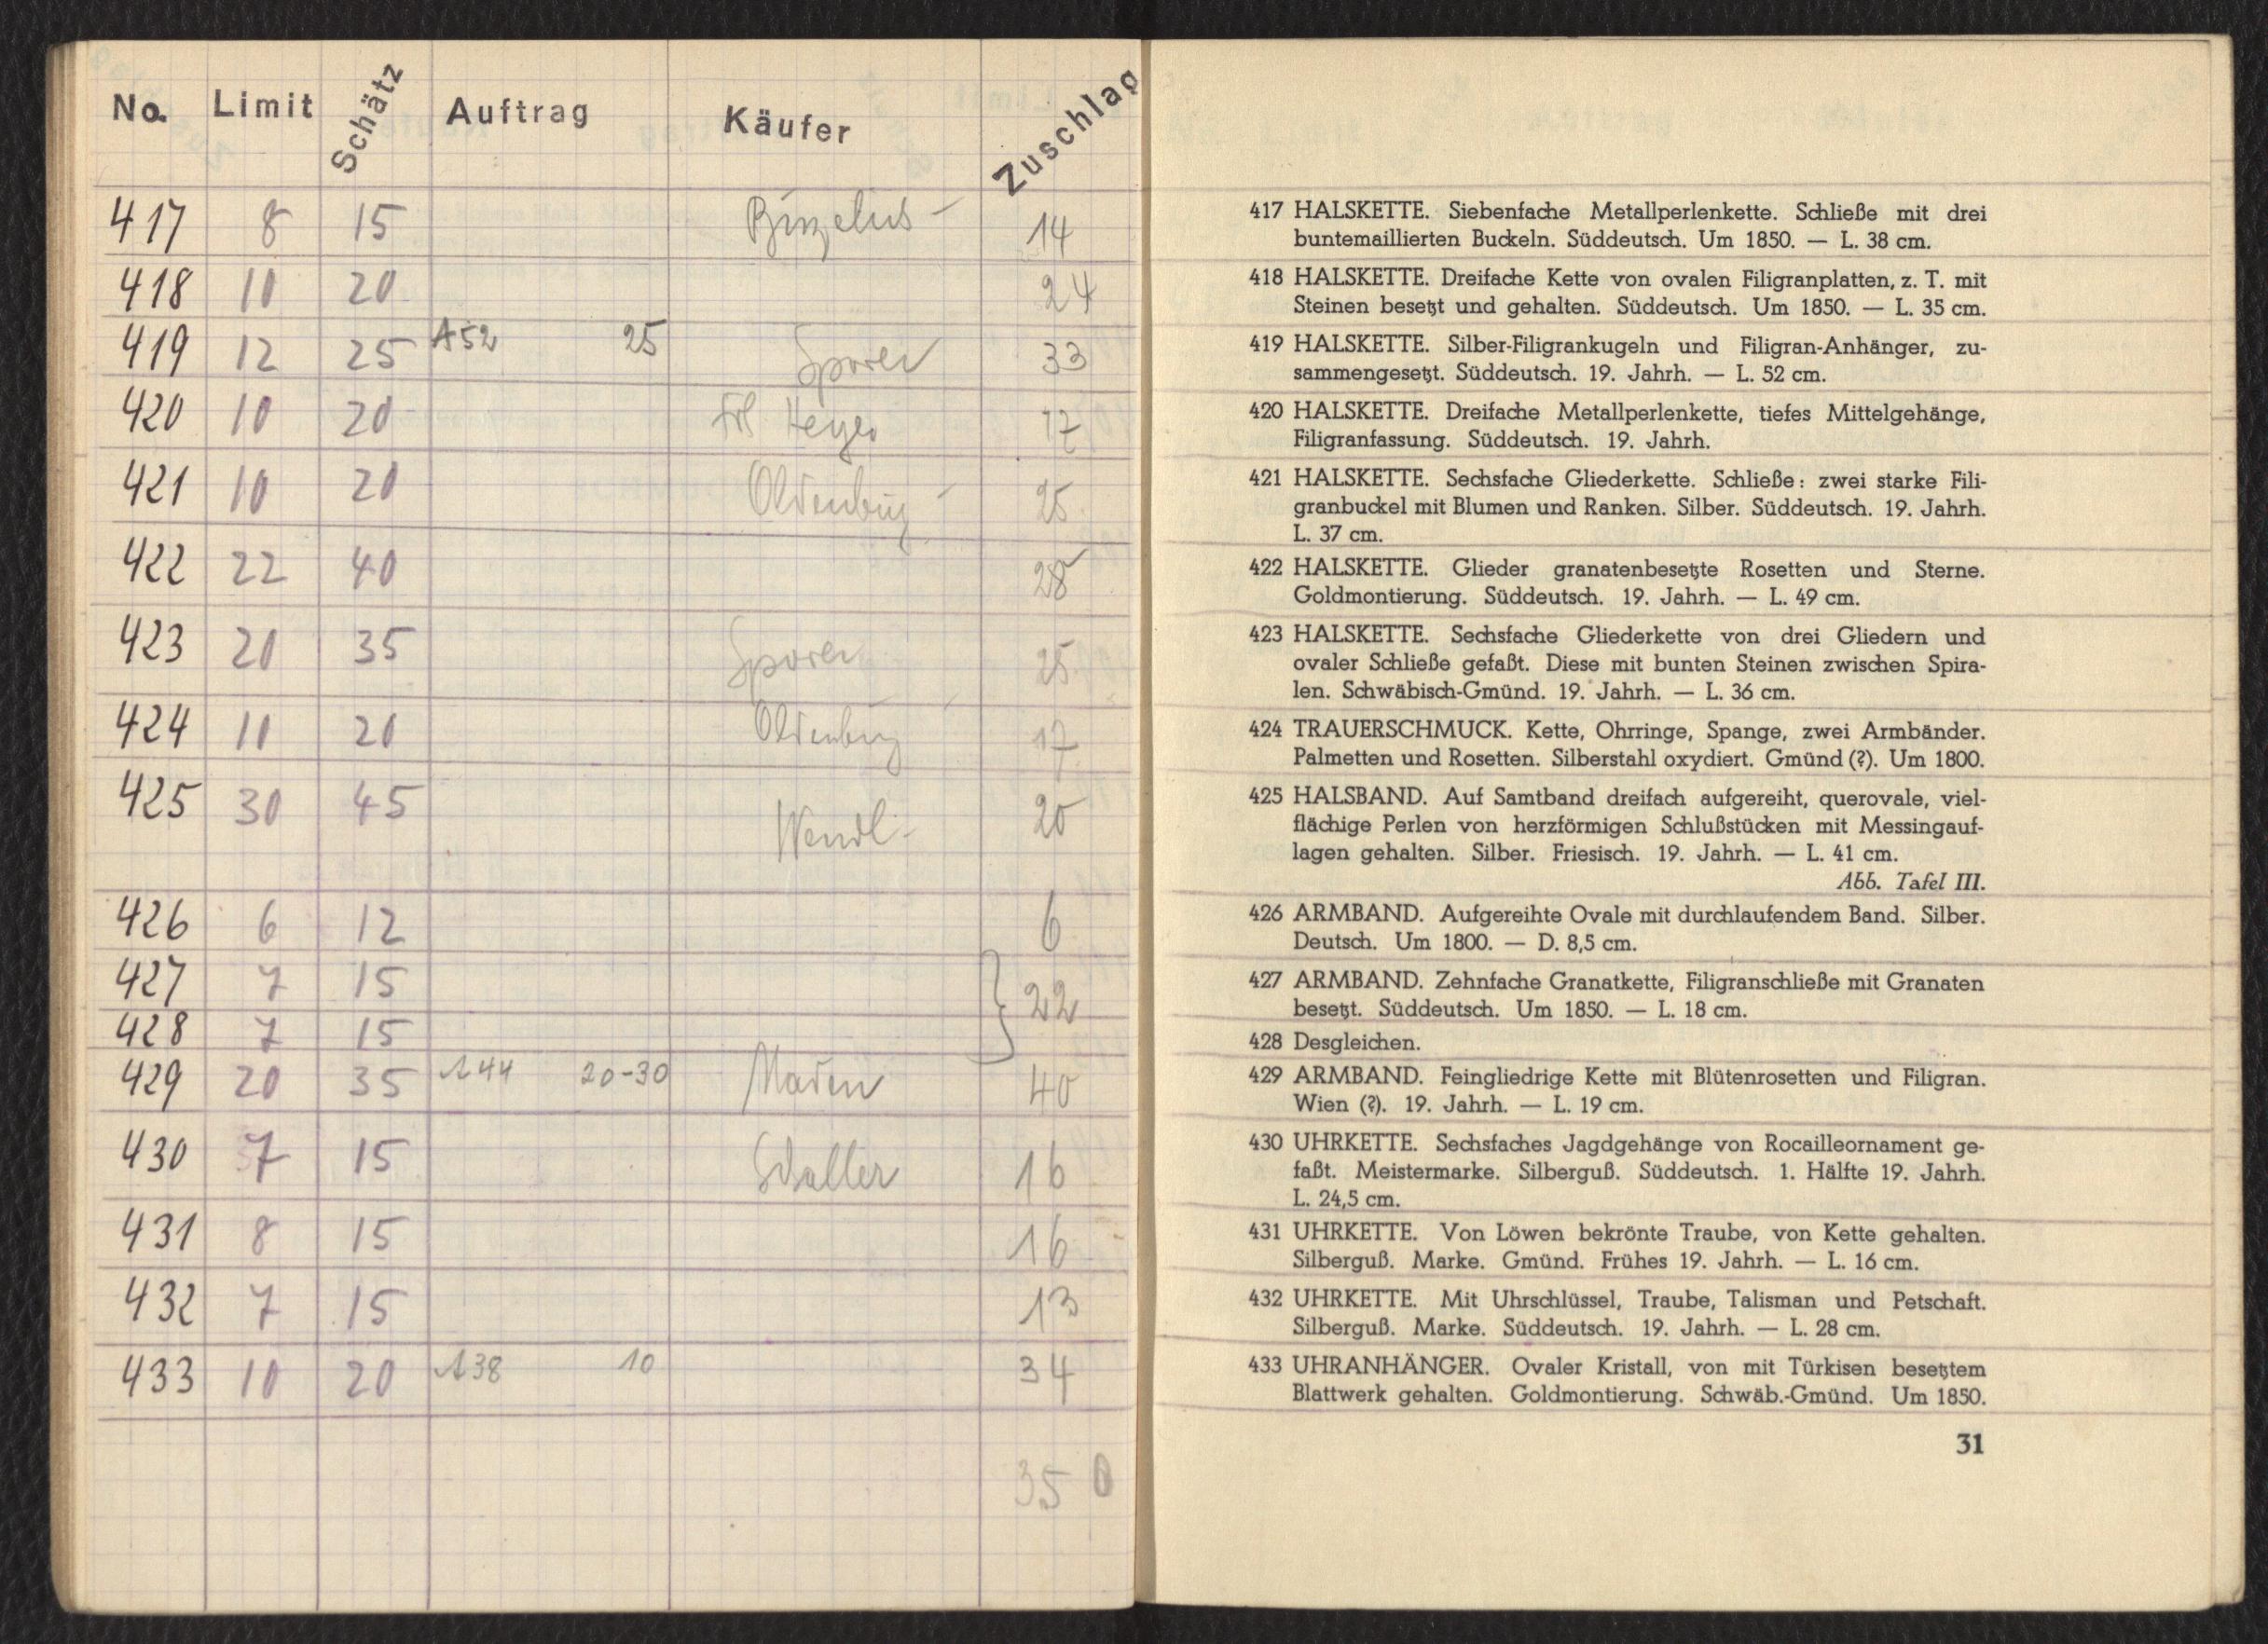 No. Limit Schätz Auftrag Käufer Zuschlag
417 8 15 14
418 10 20 24
419 12 25 A52 25 Sporer 33
420 10 20 Frl Heyer 17
421 10 20 Oldenburg 25
422 22 40 28
423 20 35 Sporer 25
424 11 20 Oldenburg 17
425 30 45 Wendl 20
426 6 12 6
427 7 15
428 7 15 } 22
429 20 35 A44 20-30 40
430 7 15 Schaller 16
431 8 15 16
432 7 15 13
433 10 20 A38 10 34
350
417 HALSKETTE. Siebenfache Metallperlenkette. Schließe mit drei
buntemaillierten Buckeln. Süddeutsch. Um 1850. — L. 38 cm.
418 HALSKETTE. Dreifache Kette von ovalen Filigranplatten, z. T. mit
Steinen besetzt und gehalten. Süddeutsch. Um 1850. — L. 35 cm.
419 HALSKETTE. Silber-Filigrankugeln und Filigran-Anhänger, zu-
sammengesetzt. Süddeutsch. 19. Jahrh. — L. 52 cm.
420 HALSKETTE. Dreifache Metallperlenkette, tiefes Mittelgehänge,
Filigranfassung. Süddeutsch. 19. Jahrh.
421 HALSKETTE. Sechsfache Gliederkette. Schließe: zwei starke Fili-
granbuckel mit Blumen und Ranken. Silber. Süddeutsch. 19. Jahrh.
L. 37 cm.
422 HALSKETTE. Glieder granatenbesetzte Rosetten und Sterne.
Goldmontierung. Süddeutsch. 19. Jahrh. — L. 49 cm.
423 HALSKETTE. Sechsfache Gliederkette von drei Gliedern und
ovaler Schließe gefaßt. Diese mit bunten Steinen zwischen Spira-
len. Schwäbisch-Gmünd. 19. Jahrh. — L. 36 cm.
424 TRAUERSCHMUCK. Kette, Ohrringe, Spange, zwei Armbänder.
Palmetten und Rosetten. Silberstahl oxydiert. Gmünd (?). Um 1800.
425 HALSBAND. Auf Samtband dreifach aufgereiht, querovale, viel-
flächige Perlen von herzförmigen Schlußstücken mit Messingauf-
lagen gehalten. Silber. Friesisch. 19. Jahrh. — L. 41 cm.
Abb. Tafel III.
426 ARMBAND. Aufgereihte Ovale mit durchlaufendem Band. Silber.
Deutsch. Um 1800. — D. 8,5 cm.
427 ARMBAND. Zehnfache Granatkette, Filigranschließe mit Granaten
besetzt. Süddeutsch. Um 1850. — L. 18 cm.
428 Desgleichen.
429 ARMBAND. Feingliedrige Kette mit Blütenrosetten und Filigran.
Wien (?). 19. Jahrh. — L. 19 cm.
430 UHRKETTE. Sechsfaches Jagdgehänge von Rocailleornament ge-
faßt. Meistermarke. Silberguß. Süddeutsch. 1. Hälfte 19. Jahrh.
L. 24,5 cm.
431 UHRKETTE. Von Löwen bekrönte Traube, von Kette gehalten.
Silberguß. Marke. Gmünd. Frühes 19. Jahrh. — L. 16 cm.
432 UHRKETTE. Mit Uhrschlüssel, Traube, Talisman und Petschaft.
Silberguß. Marke. Süddeutsch. 19. Jahrh. — L. 28 cm.
433 UHRANHÄNGER. Ovaler Kristall, von mit Türkisen besetztem
Blattwerk gehalten. Goldmontierung. Schwäb.-Gmünd. Um 1850.
31